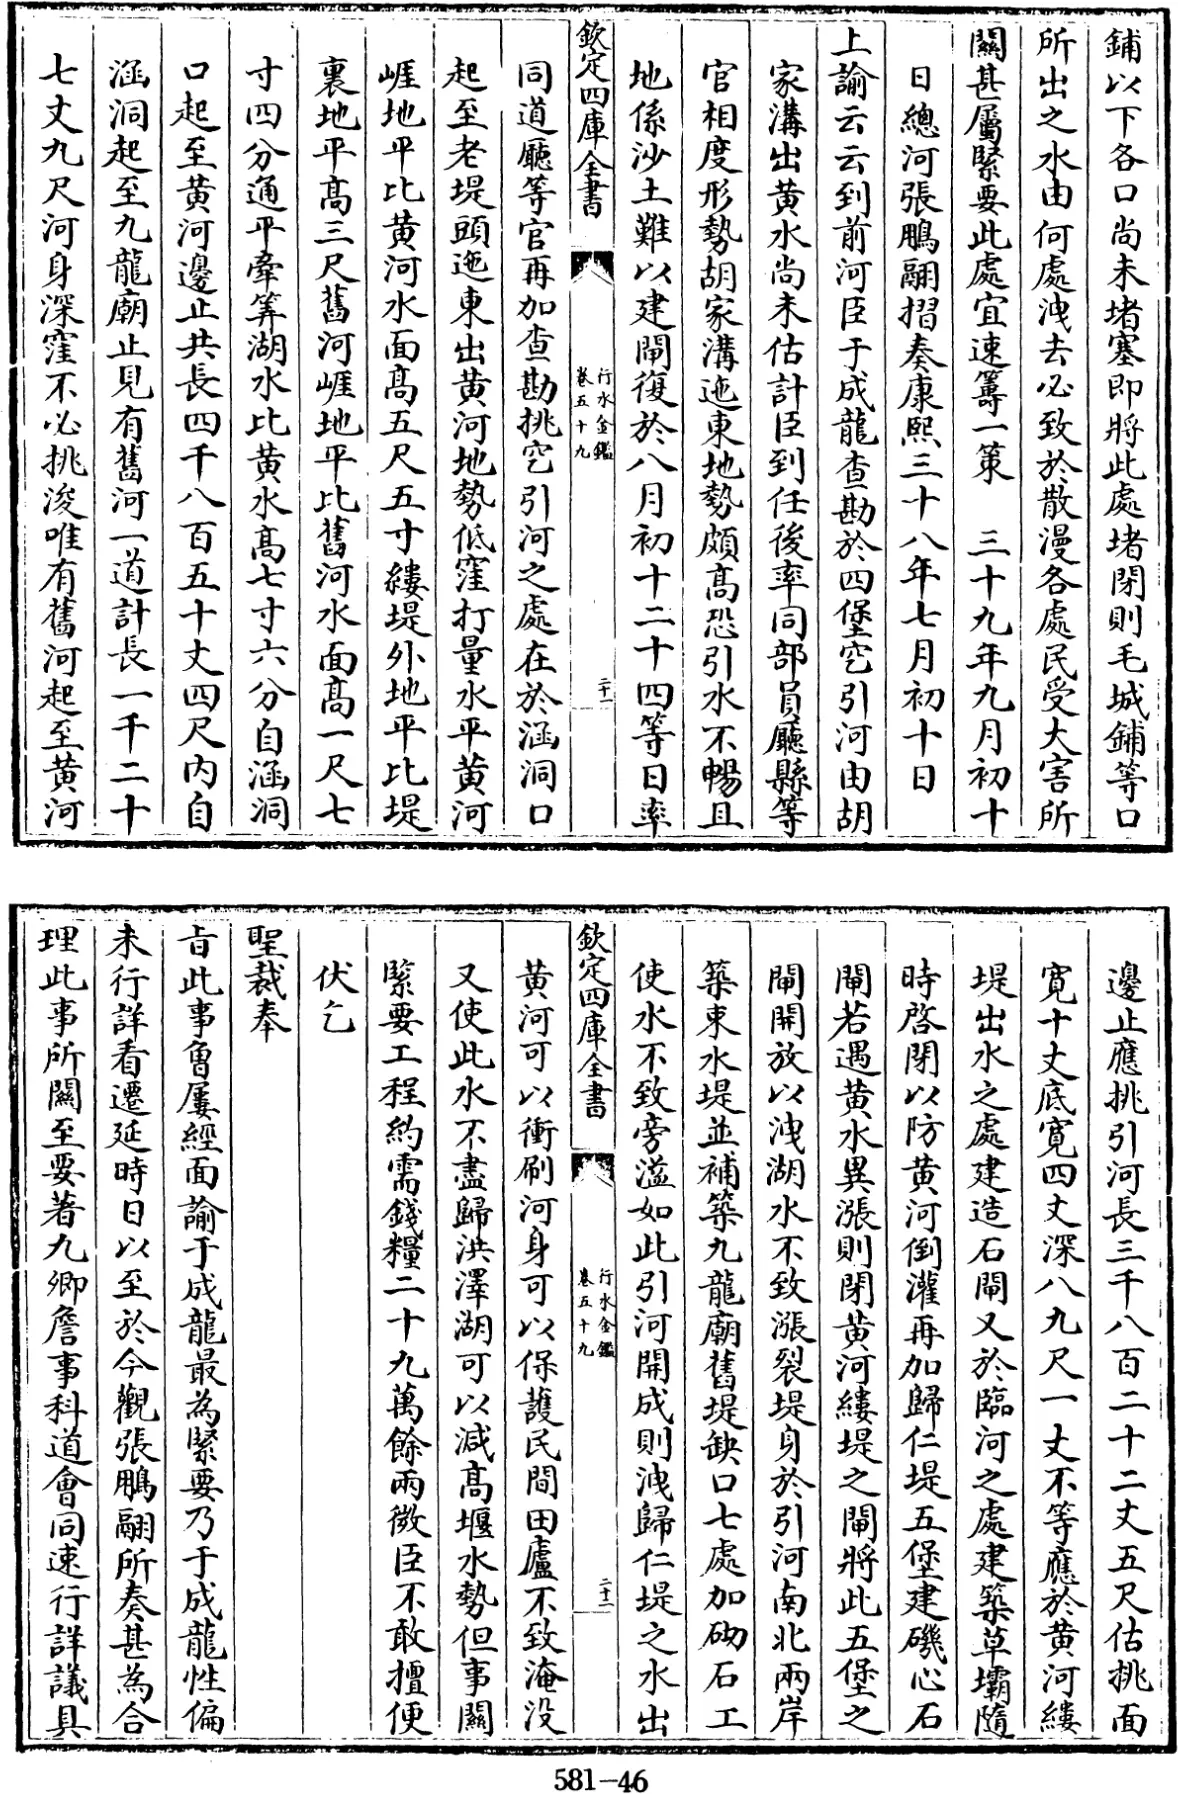 鋪以下各口尚未堵塞即將此處堵閉則毛城鋪等口
所出之水由何處洩去必致於散漫各處民受大害所
關甚屬緊要此處宜速籌一策　三十九年九月初十
日總河張鵬翮摺奏康熙三十八年七月初十日
上諭云云到前河臣于成龍查勘於四堡空引河由胡
家溝出黄水尚未估計臣到任後率同部員廳縣等
官相度形勢胡家溝迤東地勢頗高恐引水不暢且
地係沙土難以建閘復於八月初十二十四等日率
欽定四庫全書
行水金鑑
卷五十九
二十一
同道廳等官再加查勘挑空引河之處在於涵洞口
起至老堤頭迤東出黄河地勢低窪打量水平黄河
崕地平比黄河水面高五尺五寸縷堤外地平比堤
裏地平高三尺舊河崕地平比舊河水面高一尺七
寸四分通平牽算湖水比黄水高七寸六分自涵洞
口起至黄河邊止共長四千八百五十丈四尺内自
涵洞起至九龍廟止見有舊河一道計長一千二十
七丈九尺河身深窪不必挑浚唯有舊河起至黄河
邊止應挑引河長三千八百二十二丈五尺估挑面
寛十丈底寛四丈深八九尺一丈不等應於黄河縷
堤出水之處建造石閘又於臨河之處建築草壩隨
時啓閉以防黄河倒灌再加歸仁堤五堡建磯心石
閘若遇黄水異漲則閉黄河縷堤之閘將此五堡之
閘開放以洩湖水不致漲裂堤身於引河南北兩岸
築束水堤並補築九龍廟舊堤缺口七處加砌石工
使水不致旁溢如此引河開成則洩歸仁堤之水出
欽定四庫全書
行水金鑑
卷五十九
二十二
黄河可以衝刷河身可以保護民間田廬不致淹没
又使此水不盡歸洪澤湖可以減高堰水勢但事關
緊要工程約需錢糧二十九萬餘兩微臣不敢擅便
伏乞
聖裁奉
㫖此事曾屢經面諭于成龍最為緊要乃于成龍性偏
未行詳看遷延時日以至於今觀張鵬翮所奏甚為合
理此事所關至要著九卿詹事科道會同速行詳議具
581-46